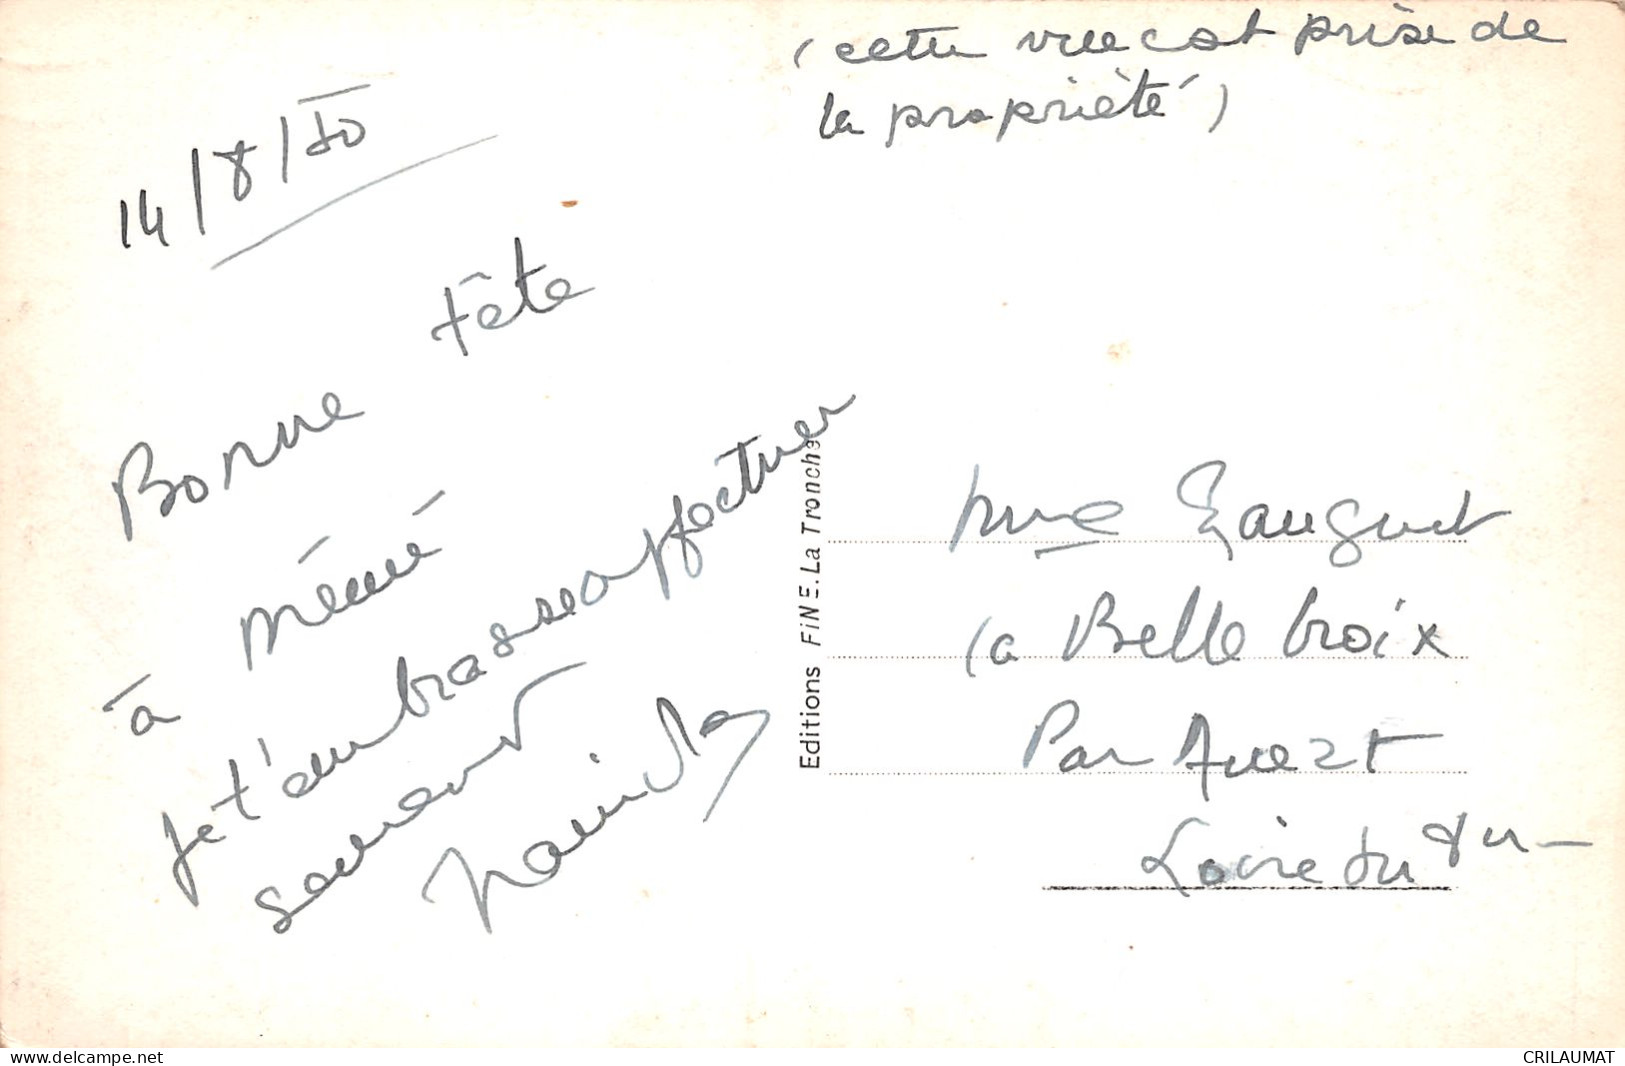 (cette vue est prise de
la propriété)
14/8/50
Bonne fête
à mémé
je t'embrasse affectueu
sement
Editions FiNE. La Tronche
Mme
la Belle Croix
Par
Loire
www.delcampe.net
CRILAUMAT